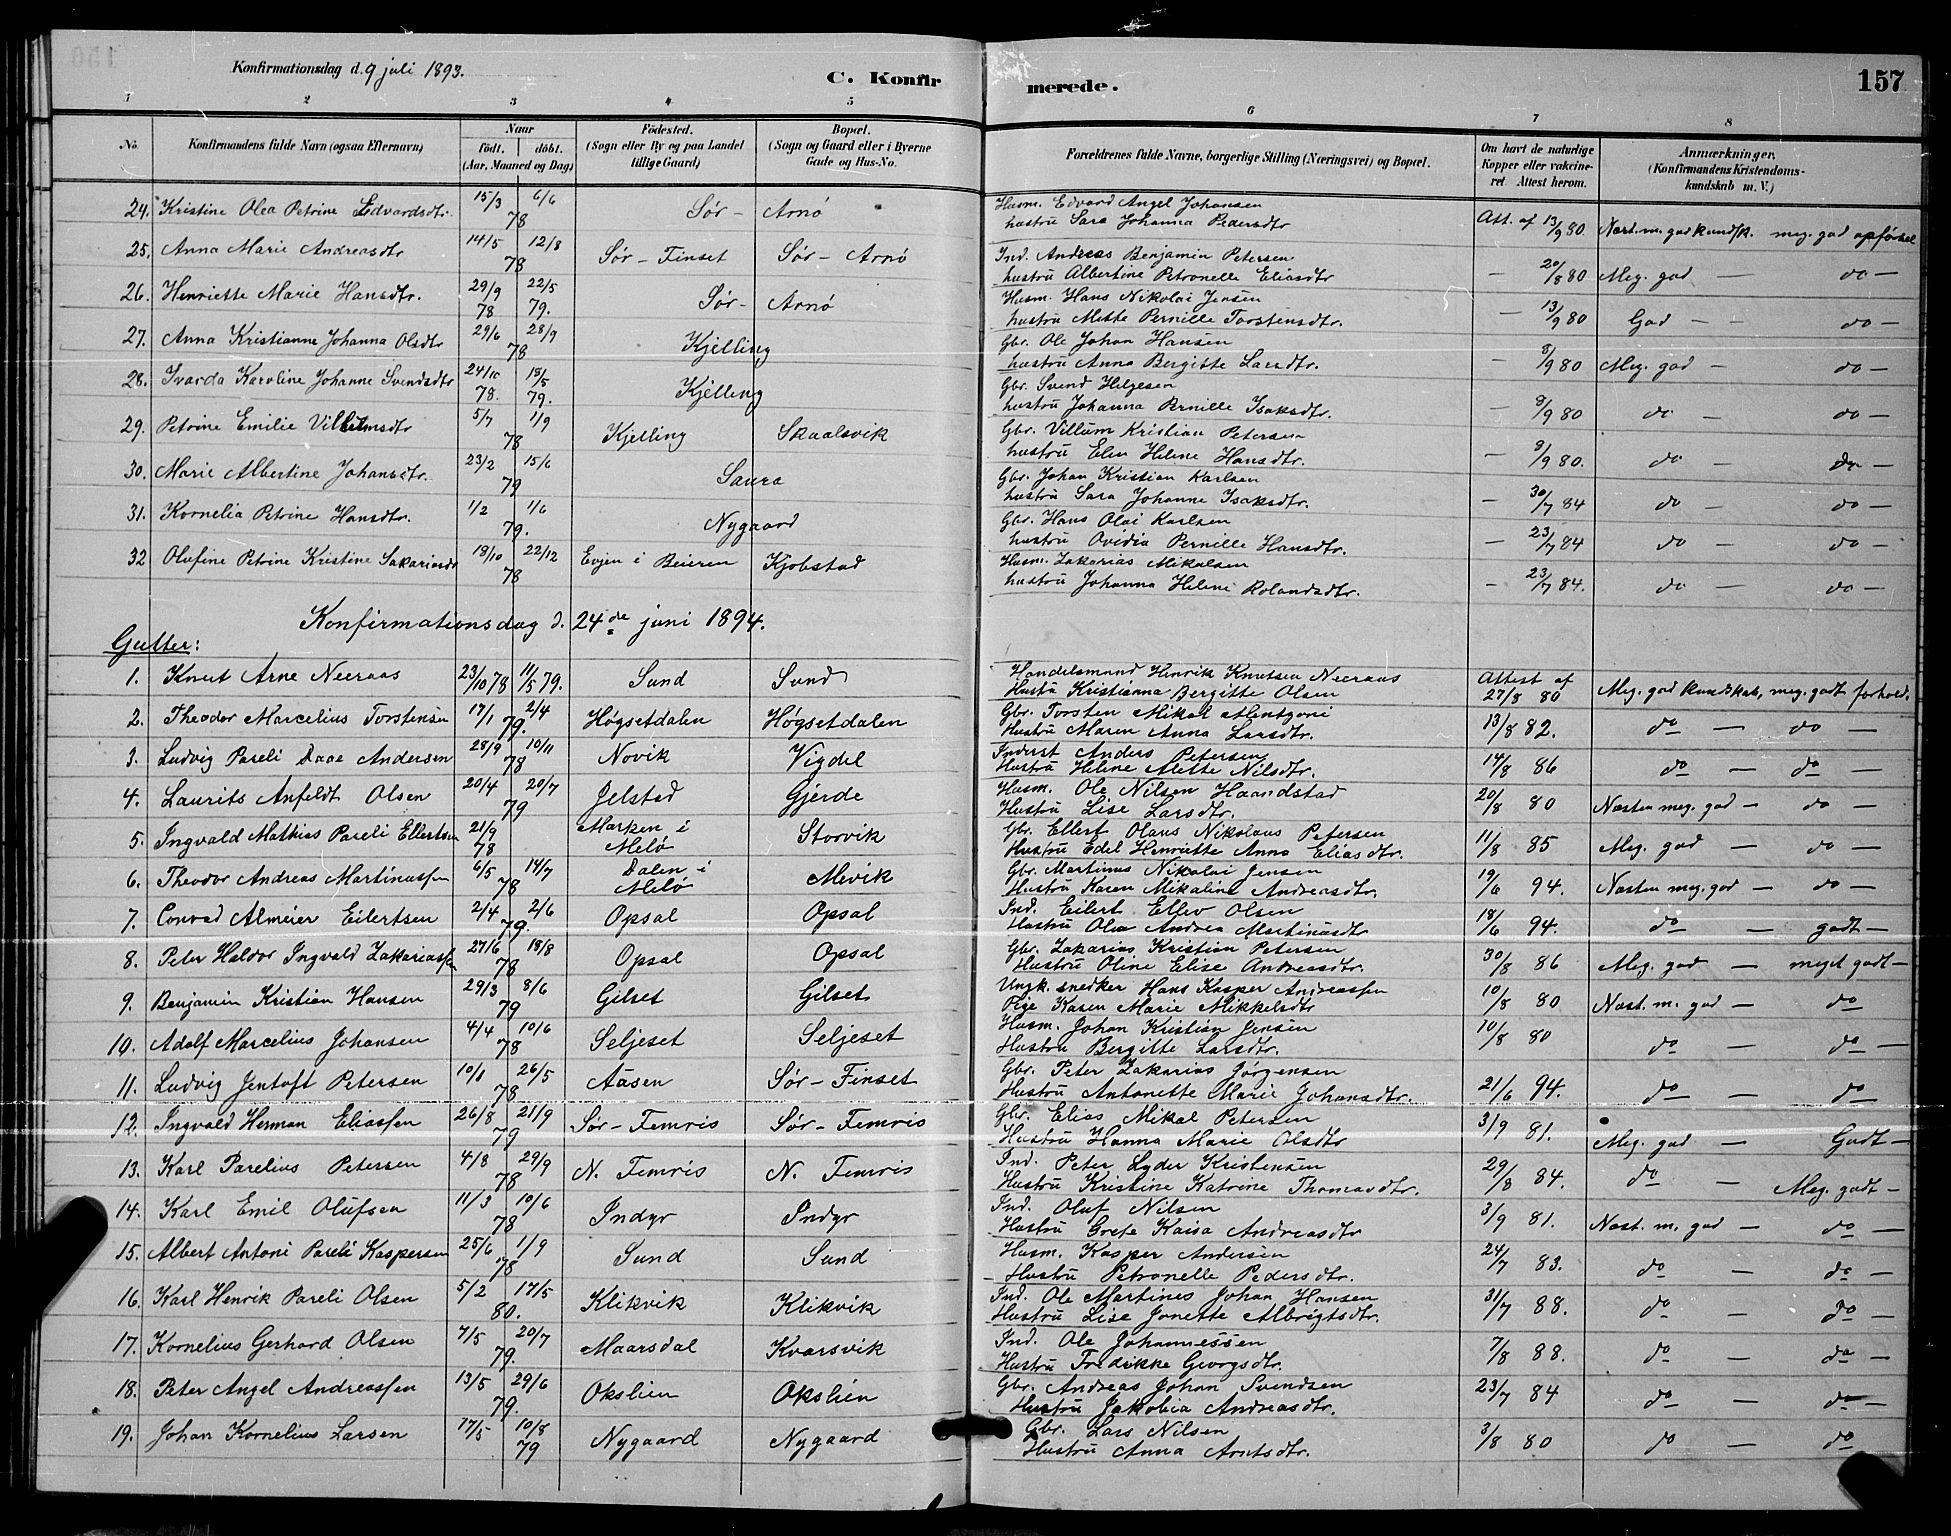 157
Konfirmationsdag d. 9 juli 1893.
C. Konfirmerede.
1 2 3 4 5 6 7 8
No. Konfirmandens fulde Navn (ogsaa Efternavn) Naar födt. döbt. (Aar, Maaned og Dag) Födested. (Sogn eller By og paa Landet tillige Gaard) Bopæl. (Sogn og Gaard eller i Byerne Gade og Hus-No. Forældrenes fulde Navne, borgerlige Stilling (Næringsvei) og Bopæl. Om havt de naturlige Kopper eller vakcineret Attest herom. Anmærkninger. (Konfirmandens Kristendomskundskab m. V.)
24. Kristine Olea Petrine Edvardsdtr. 15/3 6/6 78 Sør- Arnø Husm. Edvard Angel Johansen
hustru Sara Johanna Pedersdtr Att. af 13/9 80. Næst. m. god kundsk. meg. god opførsel
25. Anna Marie Andreasdtr 14/5 12/8 78 Sør-Finset Sør-Arnø Ind. Andreas Benjamin Petersen
hustru Albertine Petronelle Eliasdtr – 20/8 80 Meg. god – do –
26. Henriette Marie Hansdtr. 29/9 78 22/5 79. Sør- Arnø Husm. Hans Nikolai Jensen
hustru Mette Pernille Torstensdtr. – 13/9 80 God – – do –
27. Anna Kristianne Johanna Olsdtr 29/6 28/9 78 Kjelling Gbr. Ole Johan Hansen
hustru Anna Bergitte Larsdtr. – 8/9 80 Meg. god – do –
28. Ivarda Karoline Johanne Svendsdtr 24/10 78. 15/5 79. Kjelling Gbr. Svend Helgesen
hustru Johanna Pernille Isaksdtr. – 8/9 80 do – do –
29. Petrine Emilie Vilhelmsdtr 5/7 1/9 78 Kjelling Skaalsvik Gbr. Villum Kristian Petersen
hustru Elen Helene Hansdtr. – 8/9 80. do – do –
30. Marie Albertine Johansdtr. 23/2 15/6 79 Saura Gbr. Johan Kristian Karlsen
hustru Sara Johanne Isaksdtr. – 30/7 84 do – do –
31. Kornelia Petrine Hansdtr. 1/2 1/6 79. Nygaard Gbr. Hans Olai Karlsen
hustru Ovidia Pernille Hansdtr. – 23/7 84 do – do –
32 Olufine Petrine Kristine Sakariasdr 18/10 22/12 78 Evjen i Beieren Kjobstad Husm. Zakarias Mikalsen
hustru Johanna Helene Rolandsdtr. – 23/7 84. do – do –
Konfirmationsdag d. 24de juni 1894.
Gutter:
1. Knut Arne Neeraas 23/10 78 11/5 79. Sund Sund Handelsmand Henrik Knutsen Neeraas
Hustru Kristianna Bergitte Olsen Attest af 27/8 80 Meg. god kundskab, meg. godt forhold.
2. Theodor Marcelius Torstensen 17/1 2/4 79. Høgsetdalen Høgsetdalen Gbr. Torsten Mikal Mentzoni
Hustru Maren Anna Larsdtr. 13/8 82. do – do –
3. Ludvig Pareli Daae Andersen 28/9 10/11 78 Novik Vigdel Inderst Anders Petersen
Hustru Helene Alette Nilsdtr. 14/8 86 do – do –
4. Laurits Anfeldt Olsen 20/4 20/7 79 Jelstad Gjerde Husm. Ole Nilsen Haandstad
Hustru Lise Larsdtr. 20/8 80 Næsten meg. god – do –
5. Ingvald Mathias Pareli Ellertsen 21/9 78 Marken i Melø Storvik Gbr. Ellert Olaus Nikolaus Petersen
Hustru Edel Henriette Anna Eliasdtr. 11/8 85 Meg. god – do –
6. Theodor Andreas Martinussen 6/5 14/7 78 Dalen i Melø Mevik Gbr. Martinus Nikolai Jensen
Hustru Karen Mikaline Andreasdtr. 19/6 94. Næsten meg. god – do –
7. Conrad Almeier Eilertsen 2/4 2/6 79. Opsal Opsal Ind. Eilert Ellev Olsen
Hustru Olea Andrea Martinusdtr 18/6 94. do – godt –
8. Peter Haldor Ingvald Zakariassen 27/6 18/8 78 Opsal Opsal Gbr. Zakarias Kristian Petersen
Hustru Oline Elise Andreasdtr. 30/8 86 Meg. god – meget godt –
9. Benjamin Kristian Hansen 29/3 8/6 79 Gilset Gilset Ungk. snedker Hans Kasper Andreassen
Pige Karen Marie Mikkelsdtr 10/8 80 Næst. m. god – do
10. Adolf Marcelius Johansen 4/4 10/6 78 Seljeset Seljeset Husm. Johan Kristian Jensen
Hustru Bergitte Larsdtr. 10/8 80 do – do –
11. Ludvig Jentoft Petersen 10/1 26/5 78 Aasen Sør-Finset Gbr. Peter Zakarias Jørgensen
Hustru Antonette Marie Johansdtr. 21/6 94. do – do
12. Ingvald Herman Eliassen 26/8 21/9 79 Sør-Femris Sør-Femris Gbr. Elias Mikal Petersen
Hustru Hanna Marie Olsdtr 3/9 81. Meg. god – Godt –
13. Karl Parelius Petersen 4/8 29/9 78 N. Femris N. Femris Ind. Peter Lyder Kristensen
Hustru Kristine Katrine Thomasdtr. 29/8 84. do – Meg. godt –
14. Karl Emil Olufsen 11/3 10/6 78 Indyr Indyr Ind. Oluf Nilsen
Hustru Grete Kaisa Andreasdtr 3/9 81. Næst. m. god – do –
15. Albert Antoni Pareli Kaspersen 25/6 1/9 78 Sund Sund Husm. Kasper Andersen
Hustru Petronelle Pedersdtr. 24/7 83. do – do –
16. Karl Henrik Pareli Olsen 5/2 17/5 80. Klikvik Klikvik Ind. Ole Martines Johan Hansen
Hustru Lise Jonette Albrigtsdtr. 31/7 88. do – do –
17. Kornelius Gerhard Olsen 7/5 20/7 79. Maarsdal Kvarsvik Ind. Ole Johannessen
Hustru Fredikke Georgsdtr. 7/8 88. do – do –
18. Peter Angel Andreassen 13/5 29/6 79. Okslien Okslien Gbr. Andreas Johan Svendsen
Hustru Jakobia Andreasdtr. 23/7 84 do – do
19. Johan Kornelius Larsen 17/5 10/8 79 Nygaard Nygaard Gbr. Lars Nilsen
Hustru Anna Arntsdtr. 3/8 80 do – do